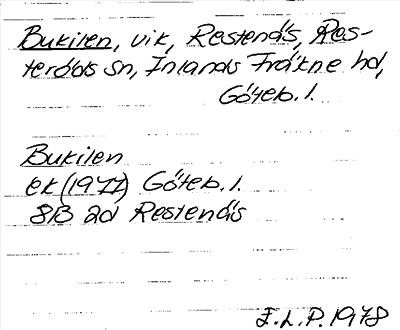 Bukilen, vik, Restenäs, Res-
teröds sn, Inlands Fräkne hd,
Göteb. l.
Bukilen
ek (1977) Göteb. l.
8B 2d Restenäs
F.L.P. 1978